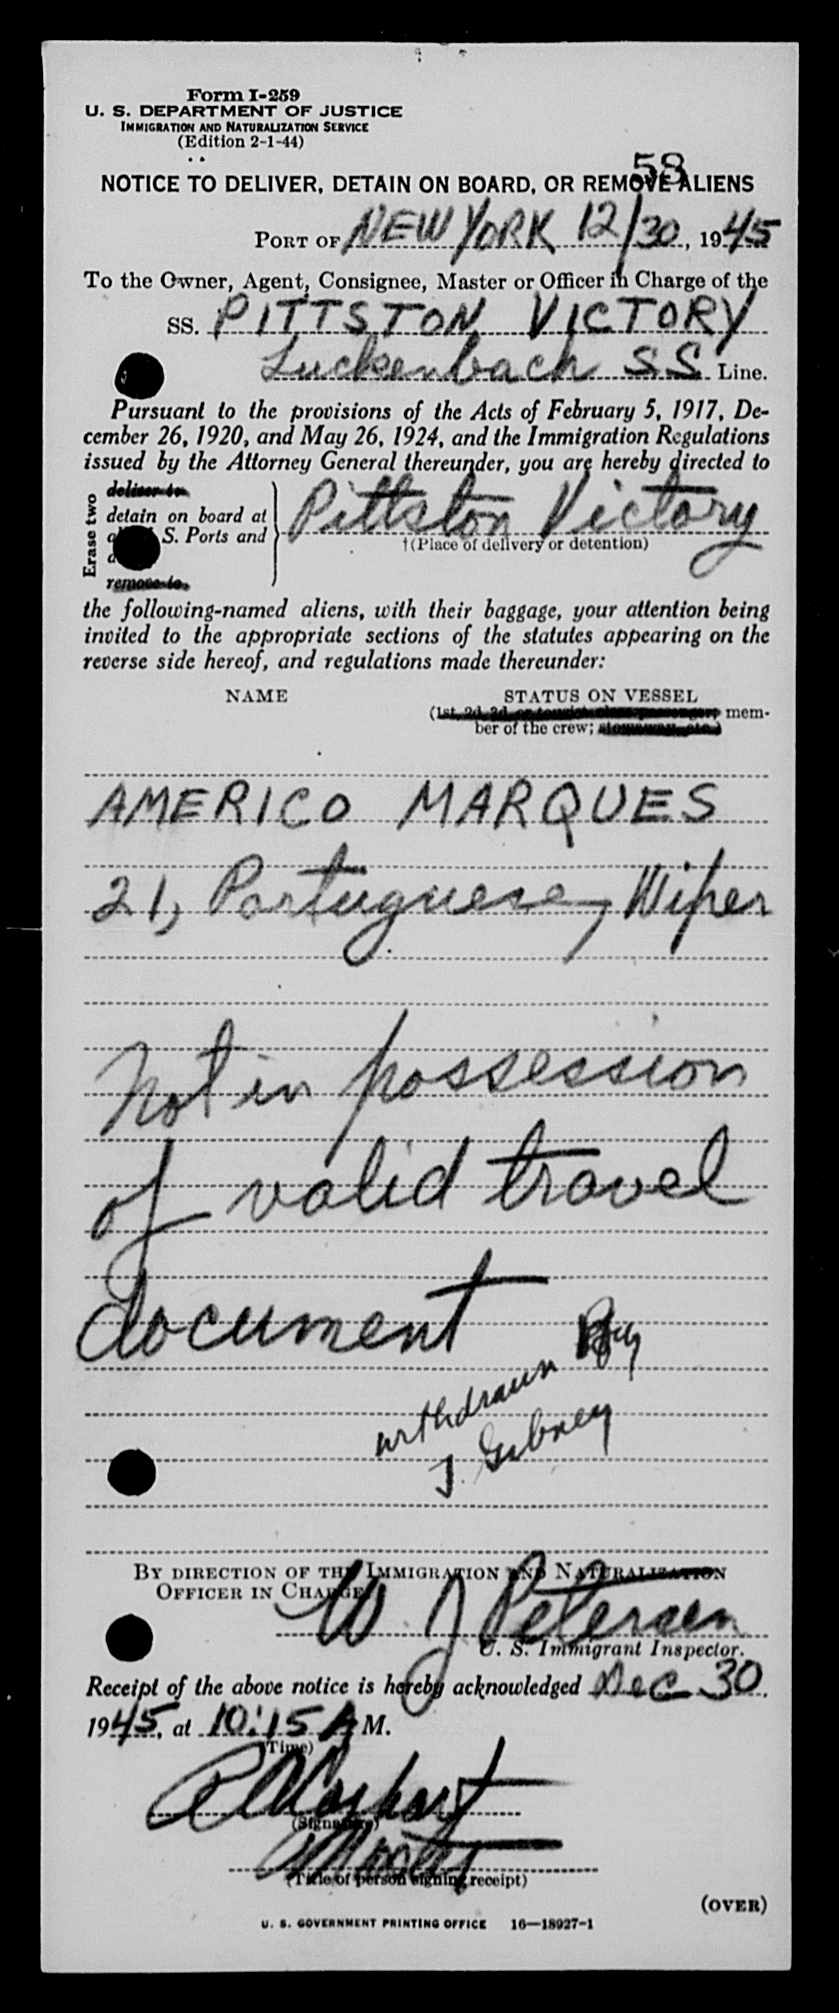 Form I-259
U. S. DEPARTMENT OF JUSTICE
IMMIGRATION AND NATURALIZATION SERVICE
(Edition 2-1-44)
58
NOTICE TO DELIVER, DETAIN ON BOARD, OR REMOVE ALIENS
PORT OF NEW YORK 12/30, 1945
To the Owner, Agent, Consignee, Master or Officer in Charge of the
SS. PITTSTON VICTORY
Luckenbach SS Line.
Pursuant to the provisions of the Acts of February 5, 1917, De-
cember 26, 1920, and May 26, 1924, and the Immigration Regulations
issued by the Attorney General thereunder, you are hereby directed to
Erase two
deliver to
detain on board at
S. Ports and
remove to
Pittston Victory
†(Place of delivery or detention)
the following-named aliens, with their baggage, your attention being
invited to the appropriate sections of the statutes appearing on the
reverse side hereof, and regulations made thereunder:
NAME STATUS ON VESSEL
(1st, 2d, 3d, or tourist class passenger; mem-
ber of the crew; stowaway, etc.)
AMERICO MARQUES
21, Portuguese, Wiper
Not in possession
of valid travel
document
withdrawn By
J. Gubney
BY DIRECTION OF THE IMMIGRATION AND NATURALIZATION
OFFICER IN CHARGE
W J Petersen
U. S. Immigrant Inspector.
Receipt of the above notice is hereby acknowledged Dec 30,
1945, at 10:15 A M.
(Time)
(Signature)
(Title of person signing receipt)
(OVER)
U. S. GOVERNMENT PRINTING OFFICE 16—18927-1